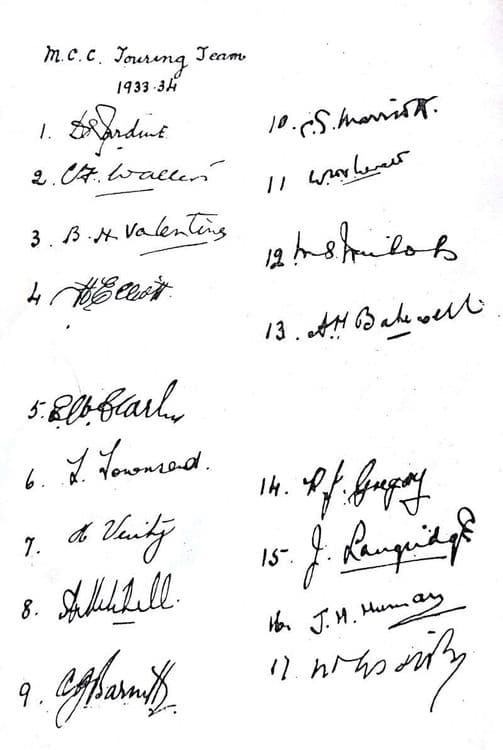 M.C.C. Touring Team
1933-34
1. DRJardine
2. C.F. Walters
3. B.H Valentine
4 H Elliott
5. E W Clark
6. L. Townsend.
7. H Verity
8. A Mitchell.
9. C J Barnett
10. C.S. Marriott.
11 WHV Levett
12 M S Nichols
13. A H Bakewell
14. R J. Gregory
15. J. Langridge
16. J. H. Human
17